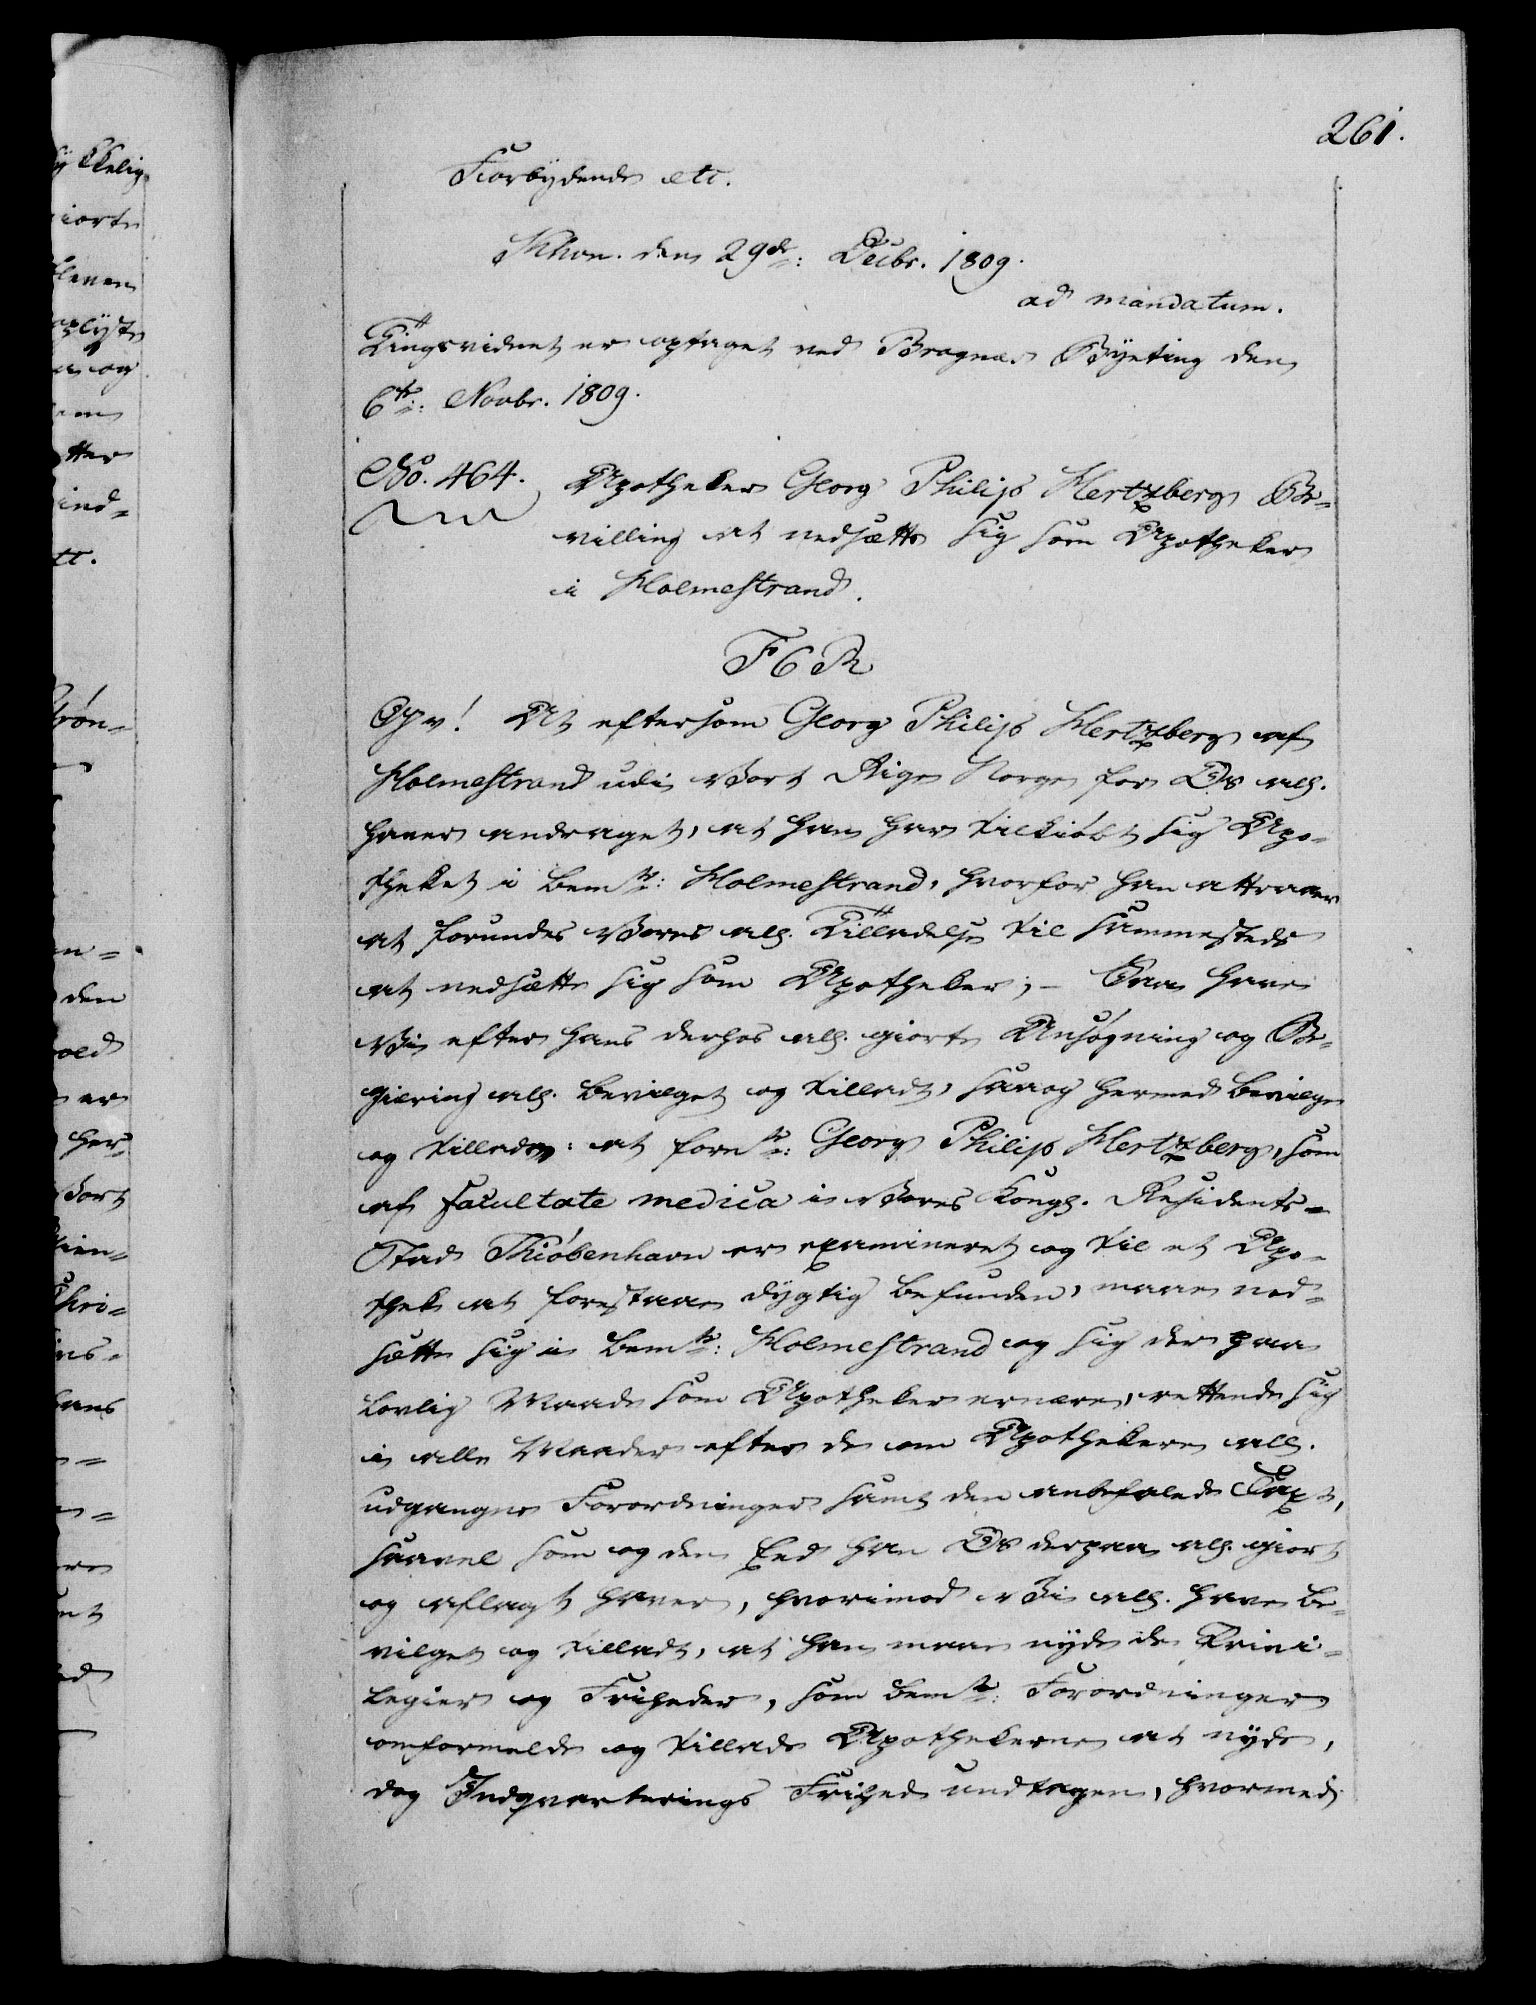 261.
Forbydende etc.
Khvn. den 29de: Decbr. 1809.
ad mandatum.
Tingsvidnet er optaget ved Bragnæs Byeting den
6te: Novbr. 1809.
No. 464. Apotheker Georg Philip Hertzberg Be-
villing at nedsætte sig som Apotheker
i Holmestrand.
F6R
G: v! At eftersom Georg Philip Hertzberg af
Holmestrand udi Vort Rige Norge for Os all.
haver andraget, at han har tilkiøbt sig Apo-
theket i bemte: Holmestrand, hvorfor han attraaer
at forundes Vores all. Tilladelse til sammesteds
at nedsætte sig som Apotheker; - Saa have
Vi efter hans derhos all. giorte Ansøgning og Be-
giering all. bevilget og tilladt, saa og hermed bevilge
og tillade: at fornte: Georg Philip Hertzberg, som
af facultate medica i Vores Kongl. Residents-
Stad Kiøbenhavn er examineret og til et Apo-
thek at forestaae dygtig befunden, maae ned-
sætte sig i bemte: Holmestrand og sig der paa
lovlig Maade som Apotheker ernære, rettende sig
i alle Maader efter de om Apothekere all.
udgangne Forordninger samt den anbefalede Taxt,
saavel som og den Eed han Os derpaa all. giort
og aflagt haver, hvorimod Vi all. have be-
vilget og tilladt, at han maae nyde de Privi-
legier og Friheder, som bemte: Forordninger
omformelde og tillade Apothekerne at nyde,
dog Indqvarterings Frihed undtagen, hvormed